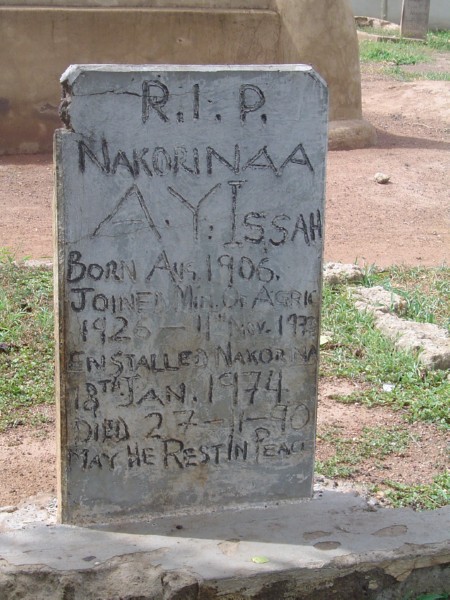 R.I.P.
NAKORINAA
A.Y. ISSAH
BORN AUG. 1906.
JOINED MIN. OF AGRIC
1926 - 11TH NOV.
ENSTALLED NAKORINA
18TH JAN. 1974
DIED 27-11-90
MAY HE REST IN PEACE